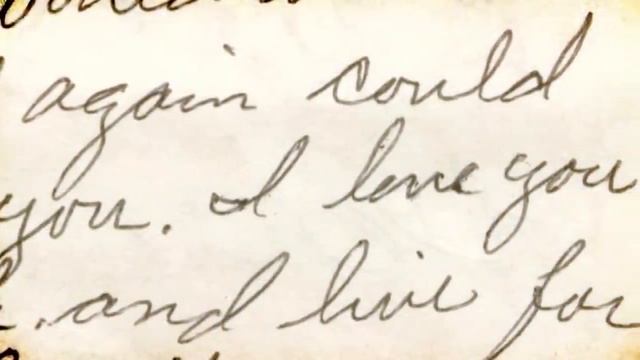 again could
you. I love you
. and live for